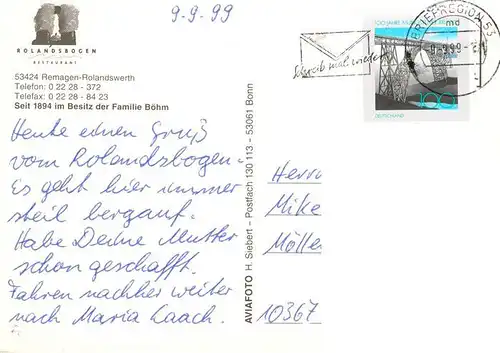 9-9-99
ROLANDSBOGEN
RESTAURANT
53424 Remagen-Rolandswerth
Telefon: 0 22 28 - 372
Telefax: 0 22 28 - 84 23
Seit 1894 im Besitz der Familie Böhm
Heute einen Gruß
vom Rolandsbogen.
Es geht hier immer
steil bergauf.
Habe Deine Mutter
schon geschafft.
Fahren nachher weiter
nach Maria Laach.
AVIAFOTO H. Siebert - Postfach 130 113 - 53061 Bonn
Schreib mal wieder
100 JAHRE
100
DEUTSCHLAND
BRIEFREGION 53
md
-9.-9.99
Herrn
Mike
Mölle
10367